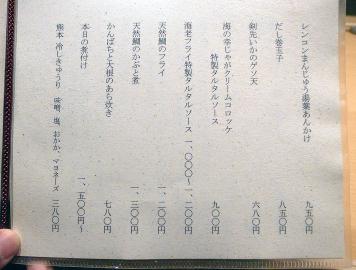 レンコンまんじゅう湯葉あんかけ 九五〇円
だし巻玉子 八五〇円
剣先いかのゲソ天 六八〇円
海の幸じゃがクリームコロッケ
特製タルタルソース 九〇〇円
海老フライ特製タルタルソース 一、〇〇〇〜一、二〇〇円
天然鯛のフライ 一、二〇〇円
天然鯛のかぶと煮 一、三〇〇円
かんぱちと大根のあら炊き 七八〇円
本日の煮付け 一、五〇〇円〜
熊本 冷しきゅうり 味噌、塩、おかか、マヨネーズ 三八〇円